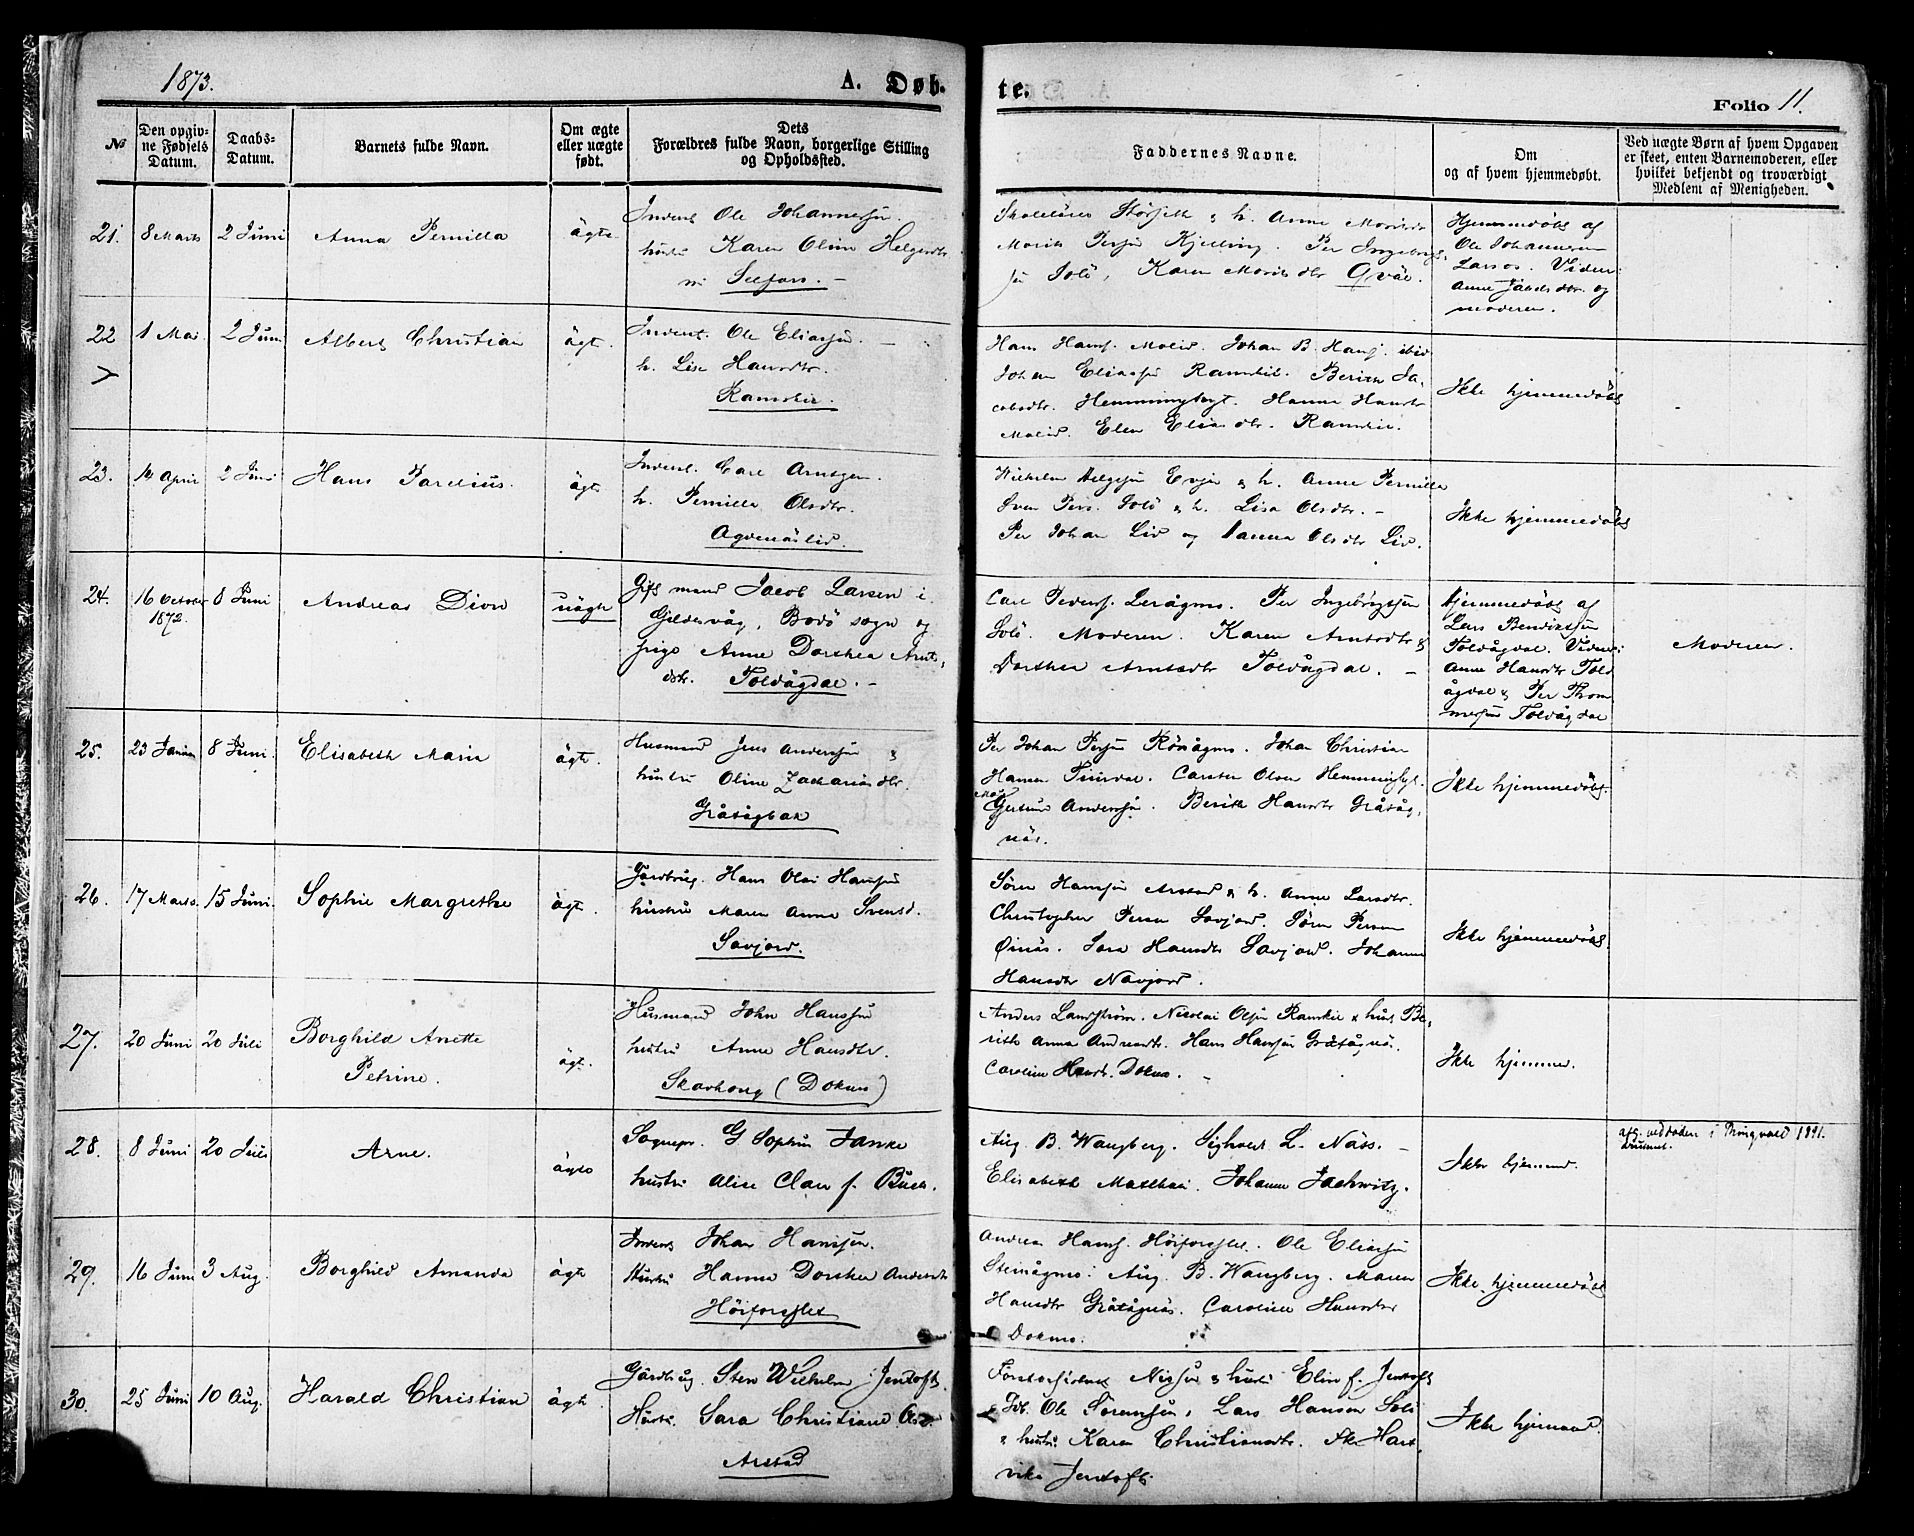 1873.
A. Døb-
te.
Folio 11.
№
Den opgiv-
ne Fødsels
Datum.
Daabs-
Datum.
Barnets fulde Navn.
Om ægte
eller uægte
født.
Dets
Forældres fulde Navn, borgerlige Stilling
og Opholdssted.
Faddernes Navne.
Om
og af hvem hjemmedøbt.
Ved uægte Børn af hvem Opgaven
er skeet, enten Barnemoderen, eller
hvilket bekjendt og troværdigt
Medlem af Menigheden.
21. 8 Marts 2 Juni Anna Pernilla ägte
Inderst Ole Johannessn.
hustru Karen Oline Helgesdtr.
Anne
Per Ingebrigt-
sn Solö, Karen Qväl.
Hjemmedöbt af
Ole Johannesen
Larsos. Vidner:
Anne Jakobsdtr. og
moderen.
22 1 Mai 2 Juni Albert Christian ägt.
Inderst. Ole Eliassn.
h. Lise Hansdtr.
Ramskie.
Hans Hans. Molid. Johan B. Hans. ibid
Johan Eliassn Ramskie. Berith Ja-
cobsdtr. Hemminghyt. Hanna Hansdtr
Molid. Elen Eliasdtr. Ramskie.
Ikke hjemmedöbt
23. 14 April 2 Juni Hans Parelius. ägte
Inderst. Carl Arntzen.
h. Pernilla Olsdtr.
Agdenäslid.
Wilhelm Helgesn Evjen & h. Anne Pernilla
Sven Pers. Solö & h. Lisa Olsdtr. -
Per Johan Liv og Hanna Olsdtr Liv.
Ikke hjemmedöbt
24. 16 October 8 Juni Andreas Dion uägte
1872.
Gift mand Jacob Larsen i
Gjeldsvåg, Bodö sogn og
pige Anne Dorthea Arnts-
dtr. Tolvågdal. -
Carl Peders. Leirågmo. Per Ingebrigtsen
Solö. Moderen. Karen Arntsdtr &
Dorthea Arntsdtr Tolvågdal. -
Hjemmedöbt af
Lars Bendiktsen
Tolvågdal. Vidner:
Anne Hansdtr Tolv
ågdal & Per Thom
mesen Tolvågdal
Moderen.
25. 23 Januar 8 Juni. Elisabeth Maria ägte.
Husmand Jens Anderssn &
hustru Oline Zachariasdtr.
Gråtågbak
Per Johan Persen Rösågmo. Johan Christian
Hansen Tinirdal. Carsten Olsen Hemminghyt.
Anderssn. Berith Hansdtr Gråtåg-
näs.
Ikke hjemmedöbt.
26. 17 Marts. 15 Juni. Sophie Margrethe ägte.
Gårdbrug. Hans Olai Hanssn
hustru Maren Anna Svensd.
Savjord.
Sören Hanssen Arstad & h. Anne Larsdtr.
Christopher Persen Savjord. Sören Persen
Öinäs. Sara Hansdtr Savjord. Johanna
Hansdtr Navjord.
Ikke hjemmedöbt
27. 20 Juni 20 Juli Borghild Anette ägt.
Petrine.
Husmand John Hanssen
hustru Anne Hansdtr.
Skarhoug (Dokmo)
Anders Landström. Nicolai Olsen Ramskie & hust. Be-
rith Anna Andreasdt. Hans Hanssn Gråtågnäs.
Caroline Hansdtr. Dokmo. -
Ikke hjemmed.
28. 8 Juni 20 Juli Arne. ägte
Sognepr. G Sophus Janke
hustru Alise Clara f. Buch.
Aug. B. Wangberg. Sigholdt L. Näss. -
Elisabeth Matthai. Johanne Jachwitz.
Ikke hjemmed.
i Tringvold 1891.
29. 16 Juni 3 Aug. Borghild Amanda ägte
Inderst Johan Hanssen.
Hustru Hanna Dorthea Andersdtr
Höiforsslet
Andreas Hans. Höiforsslet. Ole Eliassn
Steinågmo. Aug. B. Wangberg. Maren
Hansdtr Gråtågnäs. Caroline Hansdtr
Dokmo.
Ikke hjemmedöbt
30. 25 Juni 10 Aug. Harald Christian ägte.
Gårdbrug. Sten Wilhelm Jentoft.
Hustru. Sara Christiane
Arstad
Nissen & hustru Elin f. Jentoft
Ole Sörenssen, Lars Hansen Solö
& hustru Karen Christiansdtr. Hart-
vika Jentoft.
Ikke hjemmed.